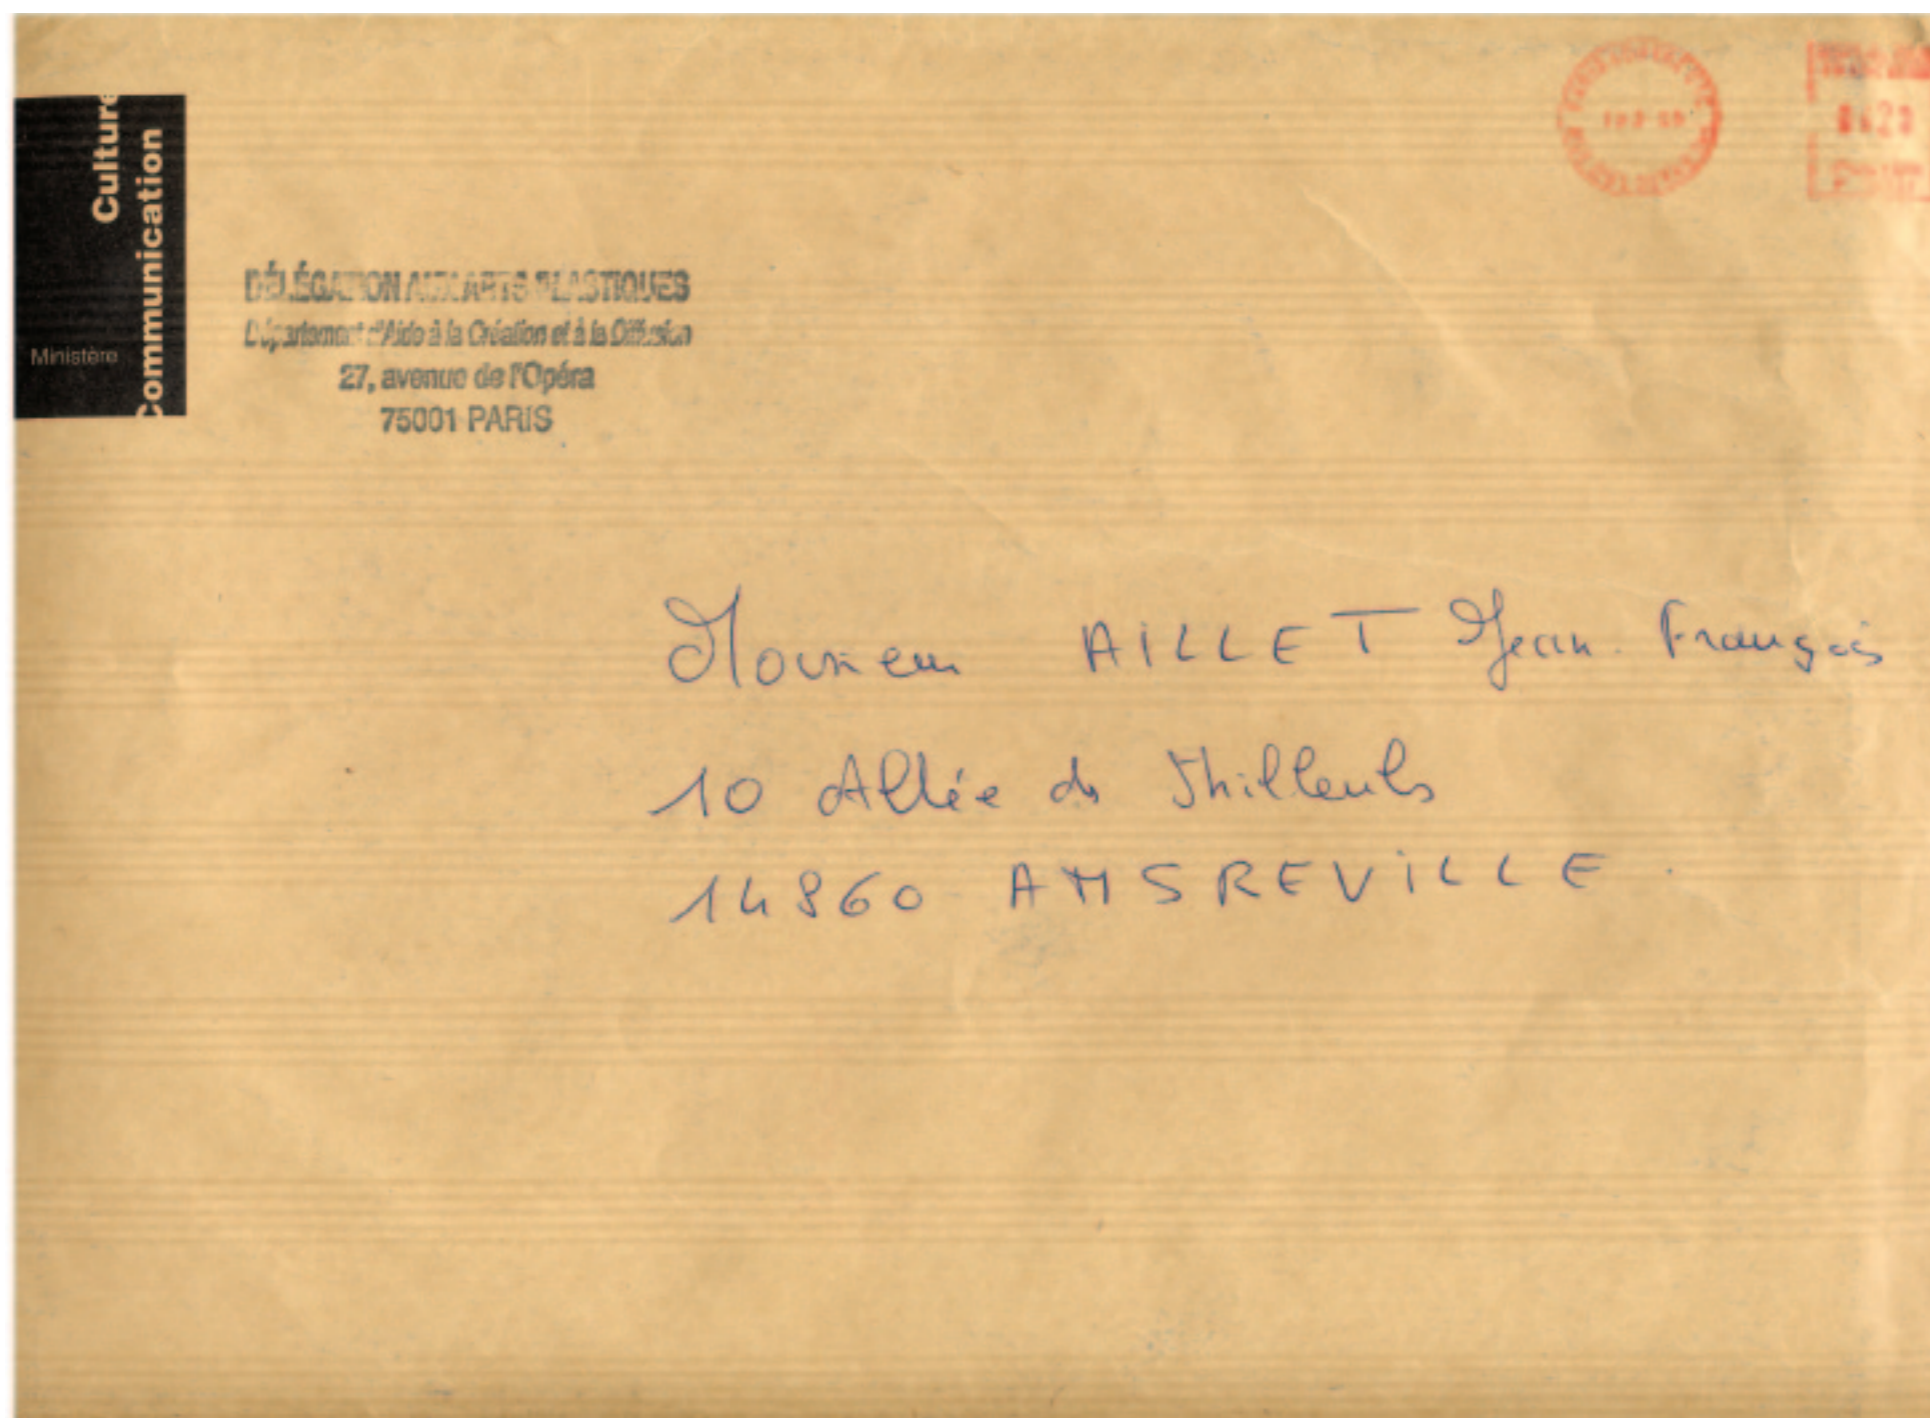 Culture
Communication
Ministère
DÉLÉGATION AUX ARTS PLASTIQUES
Département d'Aide à la Création et à la Diffusion
27, avenue de l'Opéra
75001 PARIS
Monsieur AILLET Jean. François
10 Allée des Thilleuls
14860 AMSREVILLE.